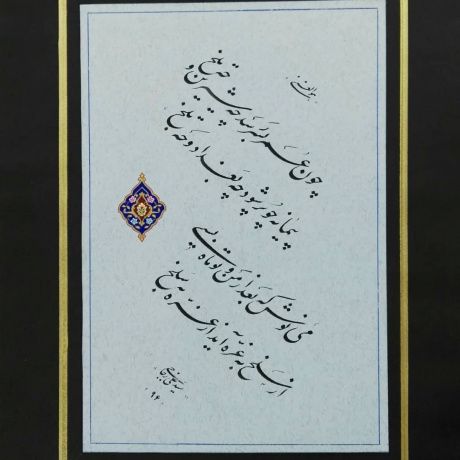 چون عمر بسر رسد چه شیرین و چه تلخ
پیمانه چو پر شود چه بغداد و چه بلخ
می نوش که بعد از من و تو ماه بسی
از سلخ به غره آید از غره به سلخ
۹۶